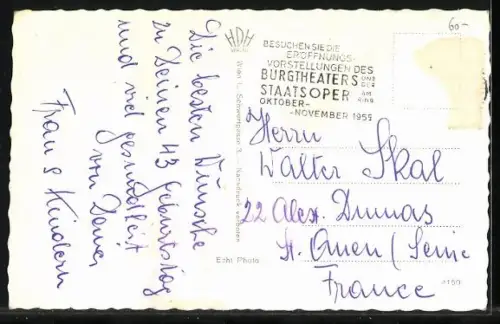 Die besten Wünsche
zu Deinen 43 Geburtstag
und viel gesundheit
von Deiner
Frau & Kindern
HDH
BESUCHEN SIE DIE
ERÖFFNUNGS-
VORSTELLUNGEN DES
BURGTHEATERS UND DER
STAATSOPER AM RING
OKTOBER-
-NOVEMBER 1955
60-
Herrn
Walter Skal
22 Alex. Dumas
St. Ouen / Seine
France
Echt Photo